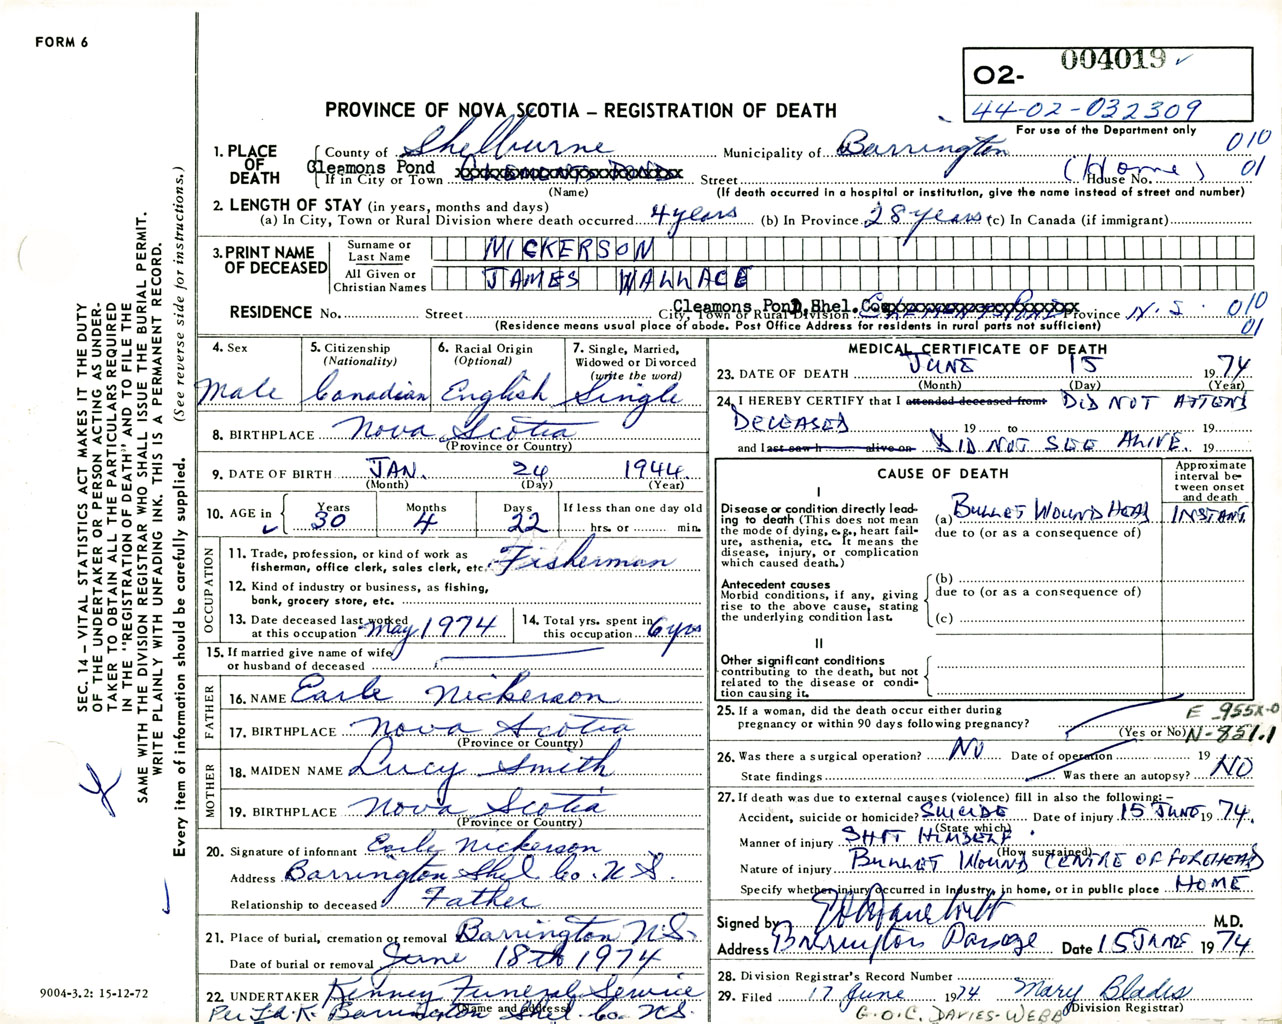 FORM 6
O2- 004019
44-02-032309
For use of the Department only
PROVINCE OF NOVA SCOTIA – REGISTRATION OF DEATH
1. PLACE OF DEATH
County of Shelburne Municipality of Barrington 010
Cleamons Pond
If in City or Town Street (Home) House No. 01
(Name) (If death occurred in a hospital or institution, give the name instead of street and number)
2. LENGTH OF STAY (in years, months and days)
(a) In City, Town or Rural Division where death occurred 4 years (b) In Province 28 years (c) In Canada (if immigrant)
3. PRINT NAME OF DECEASED
Surname or Last Name NICKERSON
All Given or Christian Names JAMES WALLACE
Cleamons Pond, Shel. Co.
RESIDENCE No. Street City, Town or Rural Division Province N.S. 010
(Residence means usual place of abode. Post Office Address for residents in rural parts not sufficient) 01
4. Sex Male
5. Citizenship (Nationality) Canadian
6. Racial Origin (Optional) English
7. Single, Married, Widowed or Divorced (write the word) Single
8. BIRTHPLACE Nova Scotia
(Province or Country)
9. DATE OF BIRTH JAN. 24 1944
(Month) (Day) (Year)
10. AGE in Years 30 Months 4 Days 22 If less than one day old hrs. or min.
OCCUPATION
11. Trade, profession, or kind of work as fisherman, office clerk, sales clerk, etc. Fisherman
12. Kind of industry or business, as fishing, bank, grocery store, etc.
13. Date deceased last worked at this occupation May 1974
14. Total yrs. spent in this occupation 6 yrs
15. If married give name of wife or husband of deceased
FATHER
16. NAME Earle Nickerson
17. BIRTHPLACE Nova Scotia
(Province or Country)
MOTHER
18. MAIDEN NAME Lucy Smith
19. BIRTHPLACE Nova Scotia
(Province or Country)
20. Signature of informant Earle Nickerson
Address Barrington Shel Co. N.S.
Relationship to deceased Father
21. Place of burial, cremation or removal Barrington N.S.
Date of burial or removal June 18th 1974
22. UNDERTAKER Kenney Funeral Service
(Name and address)
Per Barrington Shel. Co. N.S.
MEDICAL CERTIFICATE OF DEATH
23. DATE OF DEATH JUNE 15 1974
(Month) (Day) (Year)
24. I HEREBY CERTIFY that I attended deceased from DID NOT ATTEND
DECEASED 19 to 19
and last saw h alive on DID NOT SEE ALIVE. 19
CAUSE OF DEATH
Approximate interval between onset and death
I
Disease or condition directly leading to death (This does not mean the mode of dying, e.g., heart failure, asthenia, etc. It means the disease, injury, or complication which caused death.)
(a) BULLET WOUND HEAD INSTANT.
due to (or as a consequence of)
Antecedent causes
Morbid conditions, if any, giving rise to the above cause, stating the underlying condition last.
(b)
due to (or as a consequence of)
(c)
II
Other significant conditions contributing to the death, but not related to the disease or condition causing it.
25. If a woman, did the death occur either during pregnancy or within 90 days following pregnancy?
(Yes or No)
E 955X-0
N-851.1
26. Was there a surgical operation? NO Date of operation 19
State findings Was there an autopsy? NO
27. If death was due to external causes (violence) fill in also the following:–
Accident, suicide or homicide? SUICIDE Date of injury 15 JUNE 1974.
(State which)
Manner of injury SHOT HIMSELF
(How sustained)
Nature of injury BULLET WOUND CENTRE OF FOREHEAD
Specify whether injury occurred in industry, in home, or in public place HOME
Signed by M.D.
Address Barrington Passage Date 15 JUNE 1974
28. Division Registrar's Record Number
29. Filed 17 June 1974 Mary Blades
(Division Registrar)
G.O.C. DAVIES-WEBB
SEC. 14 – VITAL STATISTICS ACT MAKES IT THE DUTY
OF THE UNDERTAKER OR PERSON ACTING AS UNDER-
TAKER TO OBTAIN ALL THE PARTICULARS REQUIRED
IN THE "REGISTRATION OF DEATH" AND TO FILE THE
SAME WITH THE DIVISION REGISTRAR WHO SHALL ISSUE THE BURIAL PERMIT.
WRITE PLAINLY WITH UNFADING INK. THIS IS A PERMANENT RECORD.
Every item of information should be carefully supplied. (See reverse side for instructions.)
9004-3.2: 15-12-72